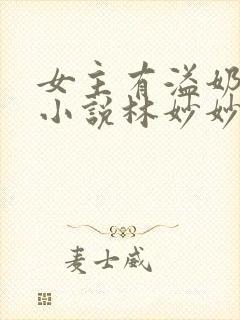 女主有溢奶
小说林妙妙
麦士威